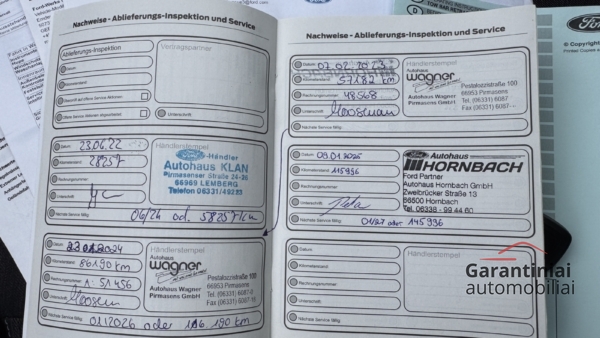 Nachweise - Ablieferungs-Inspektion und Service
Ablieferungs-Inspektion
Vertragspartner
Datum
Kilometerstand
Unterschrift
Datum 23.06.22
Händlerstempel
Kilometerstand 28257
Ford-Händler
Autohaus KLAN
Pirmasenser Straße 24-26
66969 LEMBERG
Telefon 06331/49255
Rechnungsnummer
Unterschrift
Nächste Service fällig 06/24 od. 58257km
Datum 23.01.2024
Händlerstempel
Kilometerstand 86190 km
Autohaus
wagner
Autohaus Wagner
Pirmasens GmbH
Pestalozzistraße 100
66953 Pirmasens
Tel. (06331) 6087-0
Rechnungsnummer 1: 51456
Unterschrift
Nächste Service fällig 01/2026 oder 116.190 km
Nachweise - Ablieferungs-Inspektion und Service
Datum 07.02.2023
Händlerstempel
Kilometerstand 57182 km
Autohaus
wagner
Autohaus Wagner
Pirmasens GmbH
Pestalozzistraße 100
66953 Pirmasens
Tel. (06331) 6087
Fax (06331) 6087-
Rechnungsnummer 48568
Unterschrift
Nächste Service fällig
Datum 09.01.2025
Kilometerstand 115996
Autohaus
HORNBACH
Ford Partner
Autohaus Hornbach GmbH
Zweibrücker Straße 13
66500 Hornbach
Tel. 06338 - 99 44 60
Rechnungsnummer
Unterschrift
Nächste Service fällig 01/27 oder 145996
Datum
Händlerstempel
Kilometerstand
Rechnungsnummer
Unterschrift
Nächste Service fällig
Ford
© Copyright
Garantiniai
automobiliai